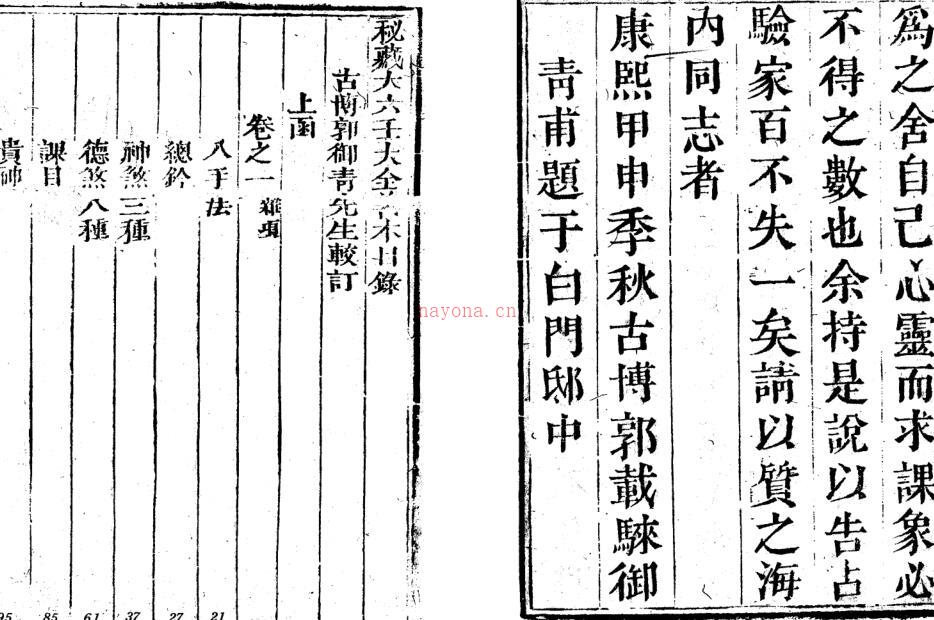 爲之舍自己心靈而求課象必
不得之數也余持是說以告占
驗家百不失一矣請以質之海
內同志者
康熙甲申季秋古博郭載騋御
靑甫題于白門邸中
秘藏大六壬大全 本目錄
古博郭御靑先生較訂
上函
卷之一 雜項
入手法
21
總鈐
27
神煞三種
37
德煞八種
61
課目
85
貴神
95
nayona.cn